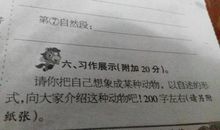 第⑦自然段：
六、习作展示(附加20分)。
请你把自己想象成某种动物，以自述的形
式，向大家介绍这种动物吧！200字左右(请另附
纸张)。